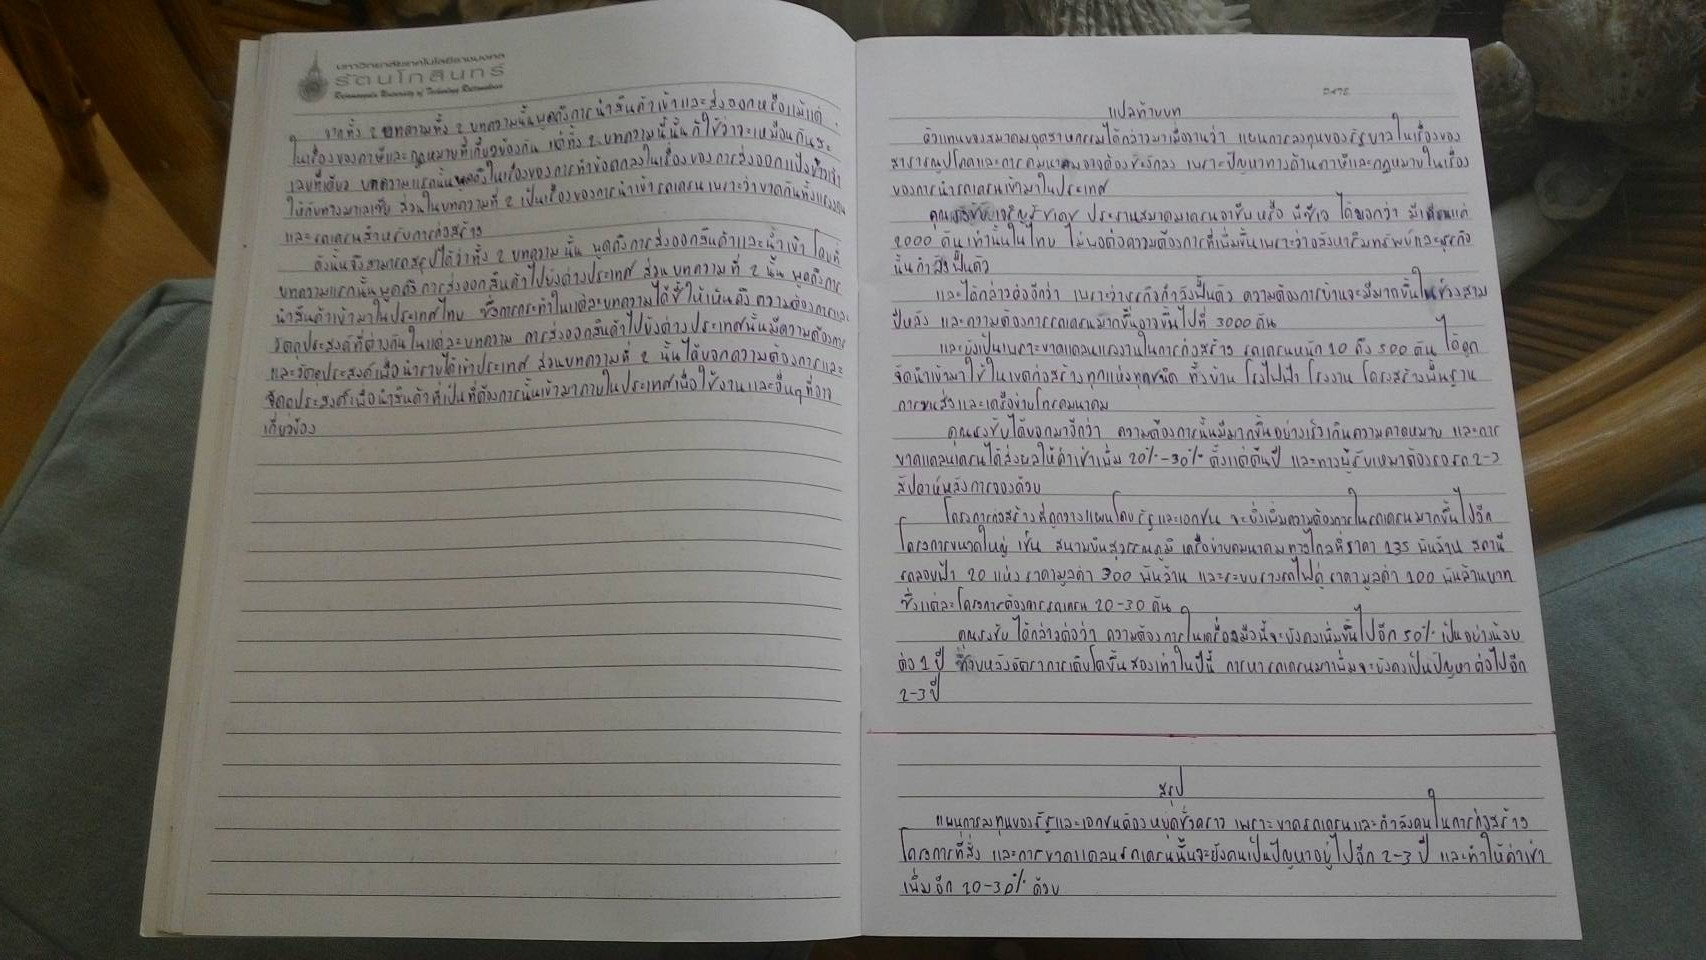 มหาวิทยาลัยเทคโนโลยีราชมงคล
รัตนโกสินทร์
Rajamangala University of Technology Rattanakosin
จากทั้ง 2 บทความทั้ง 2 บทความนั้นพูดถึงการนำสินค้าเข้าและส่งออกหรือแม้แต่
ในเรื่องของภาษีและกฎหมายที่เกี่ยวข้องกัน แต่ทั้ง 2 บทความนี้นั้นก็ใช่ว่าจะเหมือนกันซะ
เลยทีเดียว บทความแรกนั้นพูดถึงในเรื่องของการทำข้อตกลงในเรื่องของการส่งออกแป้งข้าวเจ้า
ให้กับทางมาเลเซีย ส่วนในบทความที่ 2 เป็นเรื่องของการนำเข้ารถเครน เพราะว่าขาดกันทั้งแรงคน
และรถเครนสำหรับการก่อสร้าง
ดังนั้นจึงสามารถสรุปได้ว่าทั้ง 2 บทความนั้น พูดถึงการส่งออกสินค้าและนำเข้า โดยที่
บทความแรกนั้นพูดถึงการส่งออกสินค้าไปยังต่างประเทศ ส่วนบทความที่ 2 นั้น พูดถึงการ
นำสินค้าเข้ามาในประเทศไทย ซึ่งการกระทำในแต่ละบทความได้ชี้ให้เห็นถึงความต้องการและ
วัตถุประสงค์ที่ต่างกันในแต่ละบทความ การส่งออกสินค้าไปยังต่างประเทศนั้นมีความต้องการ
และวัตถุประสงค์เพื่อนำรายได้เข้าประเทศ ส่วนบทความที่ 2 นั้นได้บอกความต้องการและ
วัตถุประสงค์เพื่อนำสินค้าที่เป็นที่ต้องการนั้นเข้ามาภายในประเทศเพื่อใช้งานและอื่นๆที่อาจ
เกี่ยวข้อง
DATE
แปลท้ายบท
ตัวแทนของสมาคมอุตสาหกรรมได้กล่าวมาเมื่อวานว่า แผนการลงทุนของรัฐบาลในเรื่องของ
สาธารณูปโภคและการคมนาคมอาจต้องชะงักลง เพราะปัญหาทางด้านภาษีและกฎหมายในเรื่อง
ของการนำรถเครนเข้ามาในประเทศ
คุณธงชัย ประธานสมาคมเครนอาเซียนหรือ ได้บอกว่า มีเครนแค่
2000 คันเท่านั้นในไทย ไม่พอต่อความต้องการที่เพิ่มขึ้นเพราะว่าอสังหาริมทรัพย์และธุรกิจ
นั้นกำลังฟื้นตัว
และได้กล่าวต่ออีกว่า เพราะว่าธุรกิจกำลังฟื้นตัว ความต้องการบ้านจะมีมากขึ้นในช่วงสาม
ปีหลัง และความต้องการรถเครนมากขึ้นอาจขึ้นไปที่ 3000 คัน
และยังเป็นเพราะขาดแคลนแรงงานในการก่อสร้าง รถเครนหนัก 10 ถึง 500 ตัน ได้ถูก
จัดนำเข้ามาใช้ในเขตก่อสร้างทุกแห่งทุกชนิด ทั้งบ้าน โรงไฟฟ้า โรงงาน โครงสร้างพื้นฐาน
การขนส่งและเครือข่ายโทรคมนาคม
คุณธงชัยได้บอกมาอีกว่า ความต้องการนั้นมีมากขึ้นอย่างเร็วเกินความคาดหมาย และการ
ขาดแคลนเครนได้ส่งผลให้ค่าเช่าเพิ่ม 20%-30% ตั้งแต่ต้นปี และทางผู้รับเหมาต้องรอรถ 2-3
สัปดาห์หลังการจองด้วย
โครงการก่อสร้างที่ถูกวางแผนโดยรัฐและเอกชน จะยิ่งเพิ่มความต้องการในรถเครนมากขึ้นไปอีก
โครงการขนาดใหญ่ เช่น สนามบินสุวรรณภูมิ เครือข่ายคมนาคมทางไกลที่ราคา 135 พันล้าน สถานี
รถลอยฟ้า 20 แห่ง ราคามูลค่า 300 พันล้าน และระบบรางรถไฟคู่ ราคามูลค่า 100 พันล้านบาท
ซึ่งแต่ละโครงการต้องการรถเครน 20-30 คัน
คุณธงชัย ได้กล่าวต่อว่า ความต้องการในเครื่องมือนี้จะยังคงเพิ่มขึ้นไปอีก 50% เป็นอย่างน้อย
ต่อ 1 ปี หลังอัตราการเติบโตขึ้นสองเท่าในปีนี้ การหารถเครนมาเพิ่มจะยังคงเป็นปัญหาต่อไปอีก
2-3 ปี
สรุป
แผนการลงทุนของรัฐและเอกชนต้องหยุดชั่วคราว เพราะขาดรถเครนและกำลังคนในการก่อสร้าง
โครงการที่สั่ง และการขาดแคลนรถเครนนั้นจะยังคงเป็นปัญหาอยู่ไปอีก 2-3 ปี และทำให้ค่าเช่า
เพิ่มอีก 20-30% ด้วย